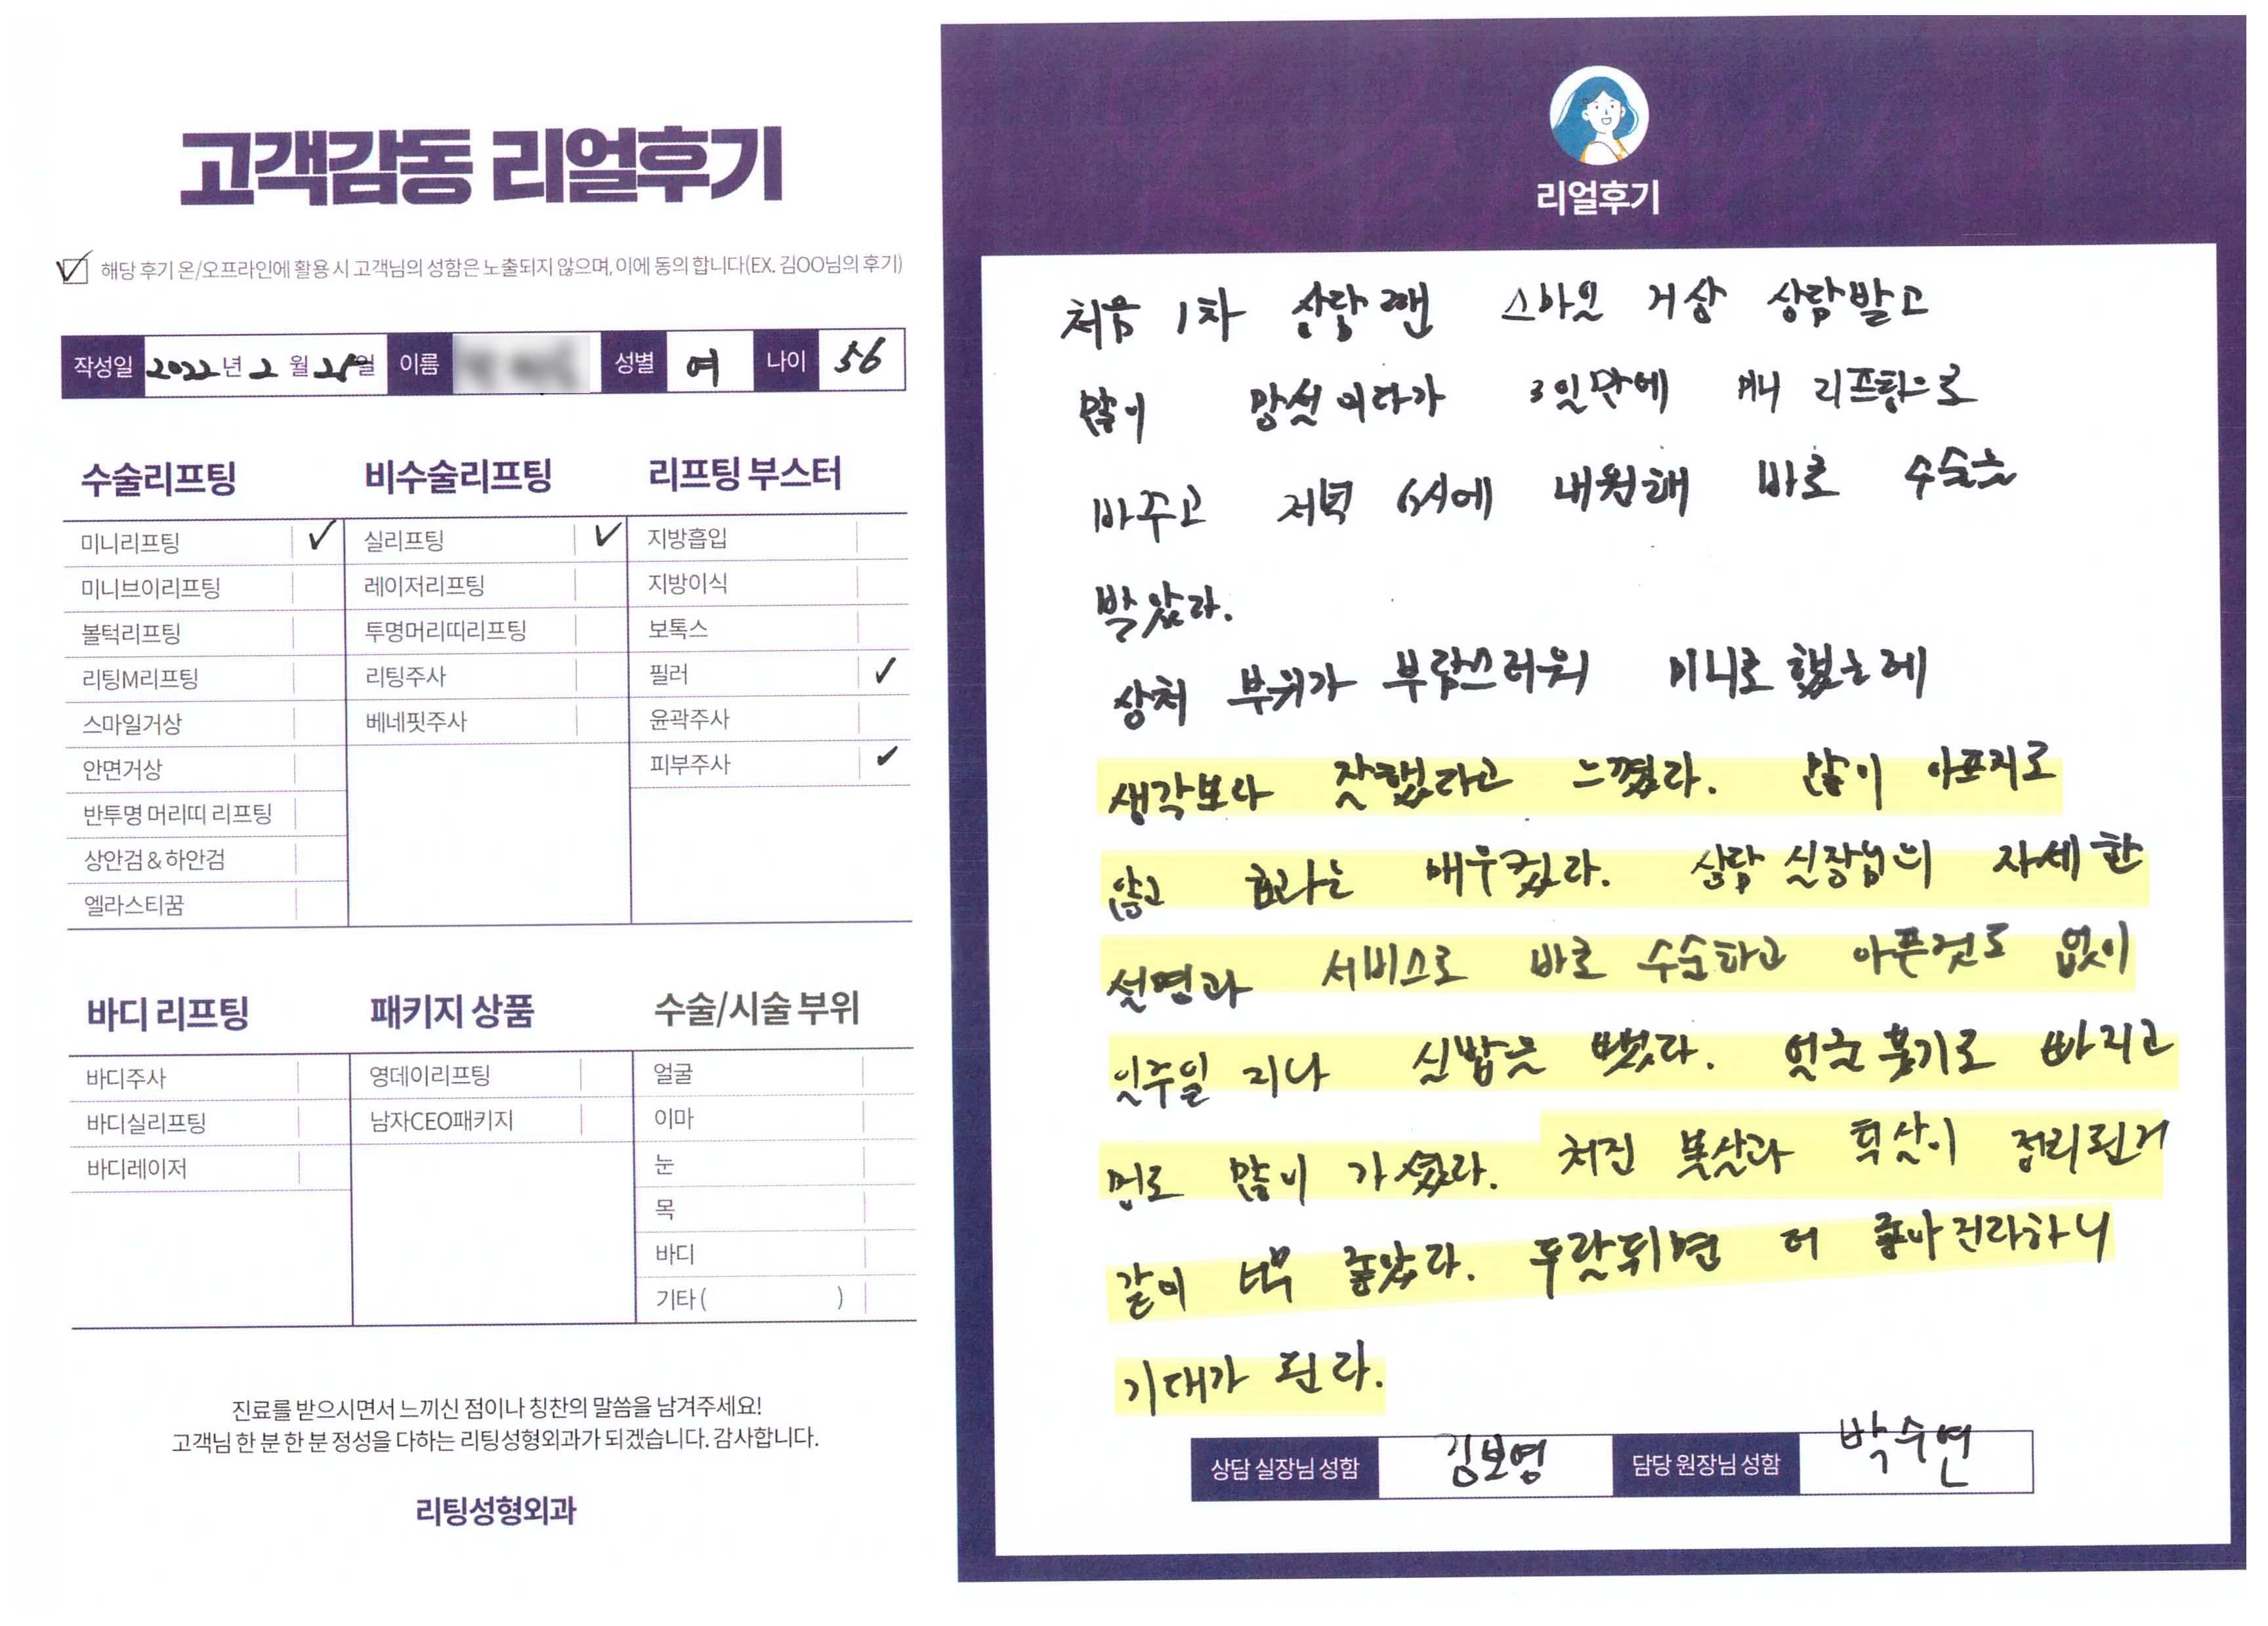 고객감동 리얼후기
해당 후기 온/오프라인에 활용 시 고객님의 성함은 노출되지 않으며, 이에 동의 합니다(EX. 김OO님의 후기)
작성일 2022년 2월 일 이름 성별 여 나이 56
수술리프팅
미니리프팅
미니브이리프팅
볼턱리프팅
리팅M리프팅
스마일거상
안면거상
반투명 머리띠 리프팅
상안검 & 하안검
엘라스티꿈
비수술리프팅
실리프팅
레이저리프팅
투명머리띠리프팅
리팅주사
베네핏주사
리프팅 부스터
지방흡입
지방이식
보톡스
필러
윤곽주사
피부주사
바디 리프팅
바디주사
바디실리프팅
바디레이저
패키지 상품
영데이리프팅
남자CEO패키지
수술/시술 부위
얼굴
이마
눈
목
바디
기타 ( )
진료를 받으시면서 느끼신 점이나 칭찬의 말씀을 남겨주세요!
고객님 한 분 한 분 정성을 다하는 리팅성형외과가 되겠습니다. 감사합니다.
리팅성형외과
리얼후기
처음 1차 상담땐 스마일 거상 상담받고
많이 망설이다가 3일만에 미니 리프팅으로
바꾸고 저녁 6시에 내원해 바로 수술을
받았다.
상처 부위가 부담스러워 미니로 했는데
생각보다 잘했다고 느꼈다. 많이 아프지도
않고 효과는 매우컸다. 상담 실장님의 자세한
설명과 서비스로 바로 수술하고 아픈것도 없이
일주일 지나 실밥을 뺐다. 얼굴 붓기도 빠지고
멍도 많이 가셨다. 처진 볼살과 턱살이 정리된거
같이 너무 좋았다. 두달뒤면 더 좋아진다하니
기대가 된다.
상담 실장님 성함 김보영 담당 원장님 성함 박수연